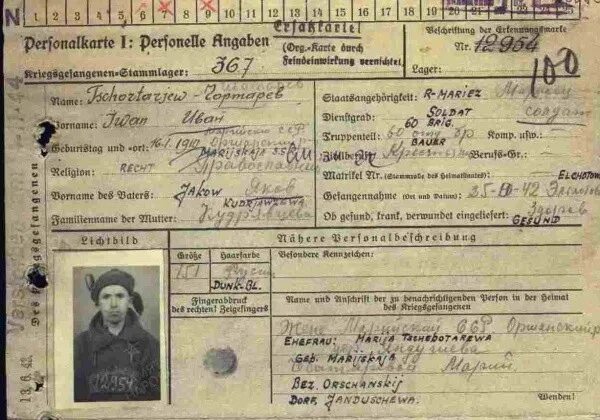 N
11 12 13 14 15 16 17 18 19 20 21
Ersatzkarte!
Personalkarte I: Personelle Angaben
(Org.-Karte durch
Feindeinwirkung vernichtet.
Beschriftung der Erkennungsmarke
Nr. 12954
Kriegsgefangenen-Stammlager: 367
Lager:
100
Name: Tschortarjew-Чортарев
Vorname: Iwan Иван
Geburtstag und -ort: 16.1.1910
MARIJSKAJA SSR
Religion: RECHT Православный
Vorname des Vaters: JAKOW Яков
KUDRJAWZEWA
Familienname der Mutter: Кудрявцева
Staatsangehörigkeit: R-MARIEZ Мариец
Dienstgrad: SOLDAT солдат
60 BRIG
Truppenteil: 60 отд бр Komp. usw.:
BAUER
Zivilberuf: Berufs-Gr.:
Matrikel Nr. (Stammrolle des Heimatstaates) ELCHOTOWO
Gefangennahme (Ort und Datum):
Ob gesund, krank, verwundet eingeliefert: Здоров
GESUND
Des Kriegsgefangenen
13.6.43
Lichtbild
12954
Größe
151
Haarfarbe
Русый
DUNK-BL.
Fingerabdruck
des rechten! Zeigefingers
Nähere Personalbeschreibung
Besondere Kennzeichen:
Name und Anschrift der zu benachrichtigenden Person in der Heimat
des Kriegsgefangenen
Жена Марийский Оршанский
EHEFRAU: MARIJA TSCHEBOTAREWA
GEB. MARIJSKAJA
Мария
BEZ. ORSCHANSKIJ
DORF, JANDUSCHEWA.
Wenden!